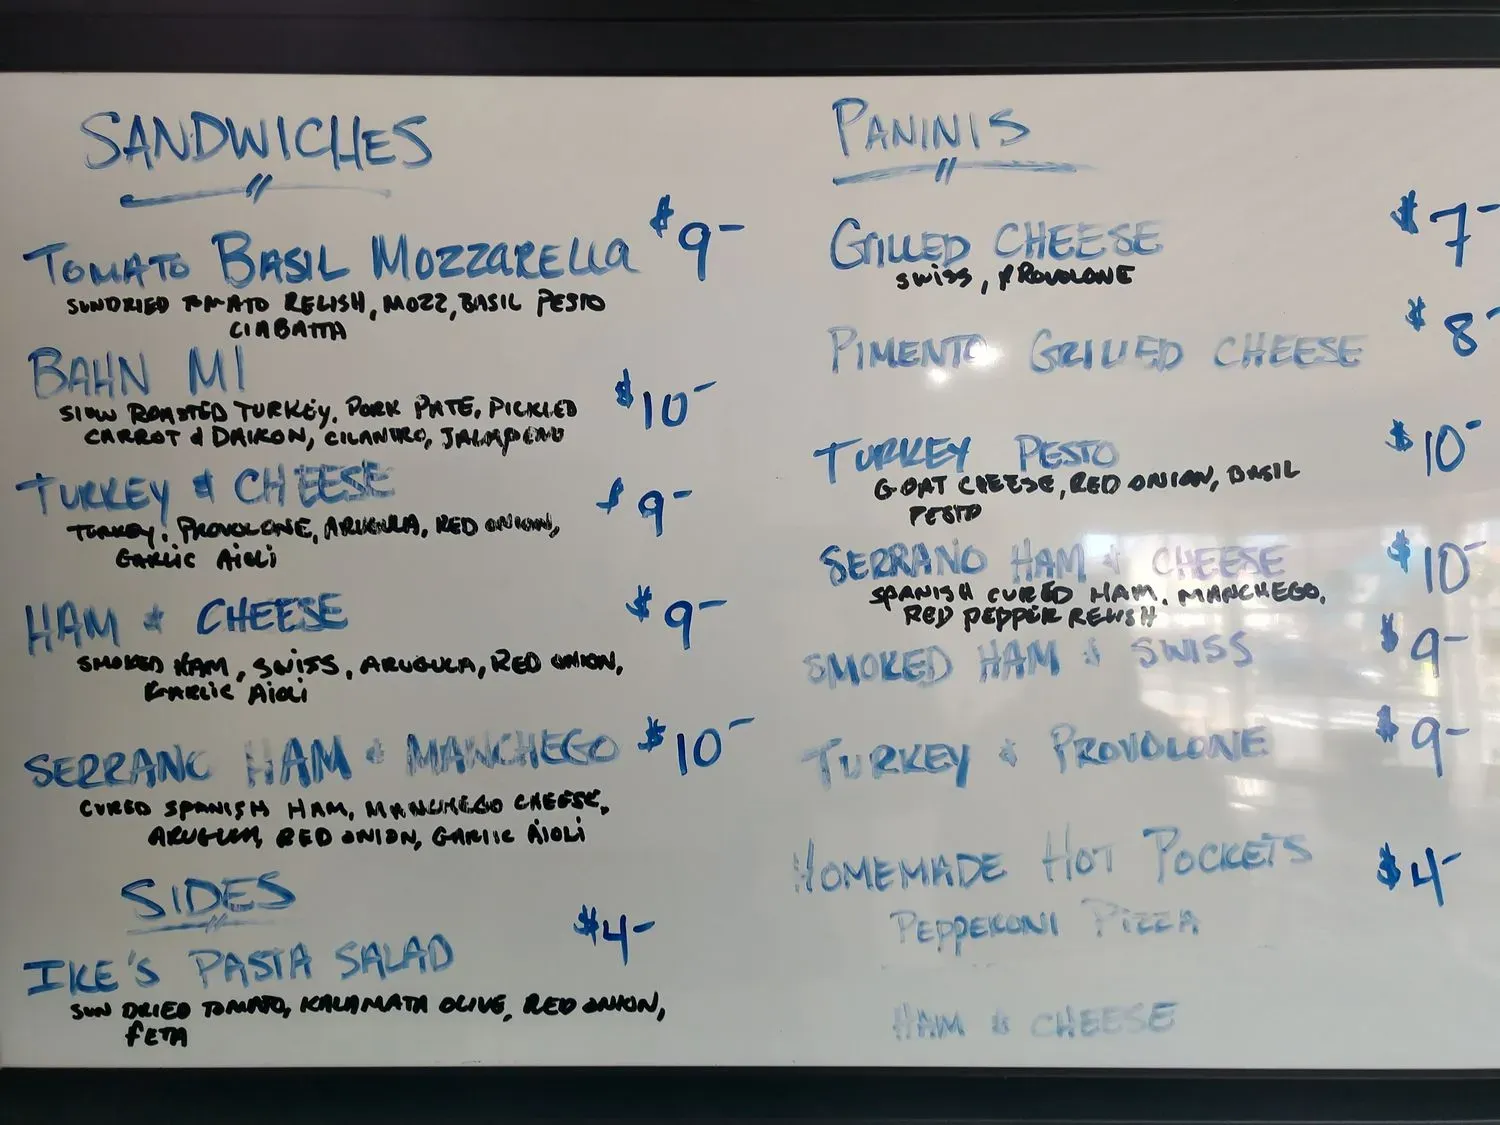 SANDWICHES
TOMATO BASIL MOZZARELLA $9-
SUNDRIED TOMATO RELISH, MOZZ, BASIL PESTO
CIABATTA
BAHN MI $10-
SLOW ROASTED TURKEY, PORK PATE, PICKLED
CARROT & DAIKON, CILANTRO, JALAPENO
TURKEY & CHEESE $9-
TURKEY, PROVOLONE, ARUGULA, RED ONION,
GARLIC AIOLI
HAM & CHEESE $9-
SMOKED HAM, SWISS, ARUGULA, RED ONION,
GARLIC AIOLI
SERRANO HAM & MANCHEGO $10-
CURED SPANISH HAM, MANCHEGO CHEESE,
ARUGULA, RED ONION, GARLIC AIOLI
SIDES
IKE'S PASTA SALAD $4-
SUN DRIED TOMATO, KALAMATA OLIVE, RED ONION,
FETA
PANINIS
GRILLED CHEESE $7-
SWISS, PROVOLONE
PIMENTO GRILLED CHEESE $8-
TURKEY PESTO $10-
GOAT CHEESE, RED ONION, BASIL
PESTO
SERRANO HAM & CHEESE $10-
SPANISH CURED HAM, MANCHEGO,
RED PEPPER RELISH
SMOKED HAM & SWISS $9-
TURKEY & PROVOLONE $9-
HOMEMADE HOT POCKETS $4-
PEPPERONI PIZZA
HAM & CHEESE